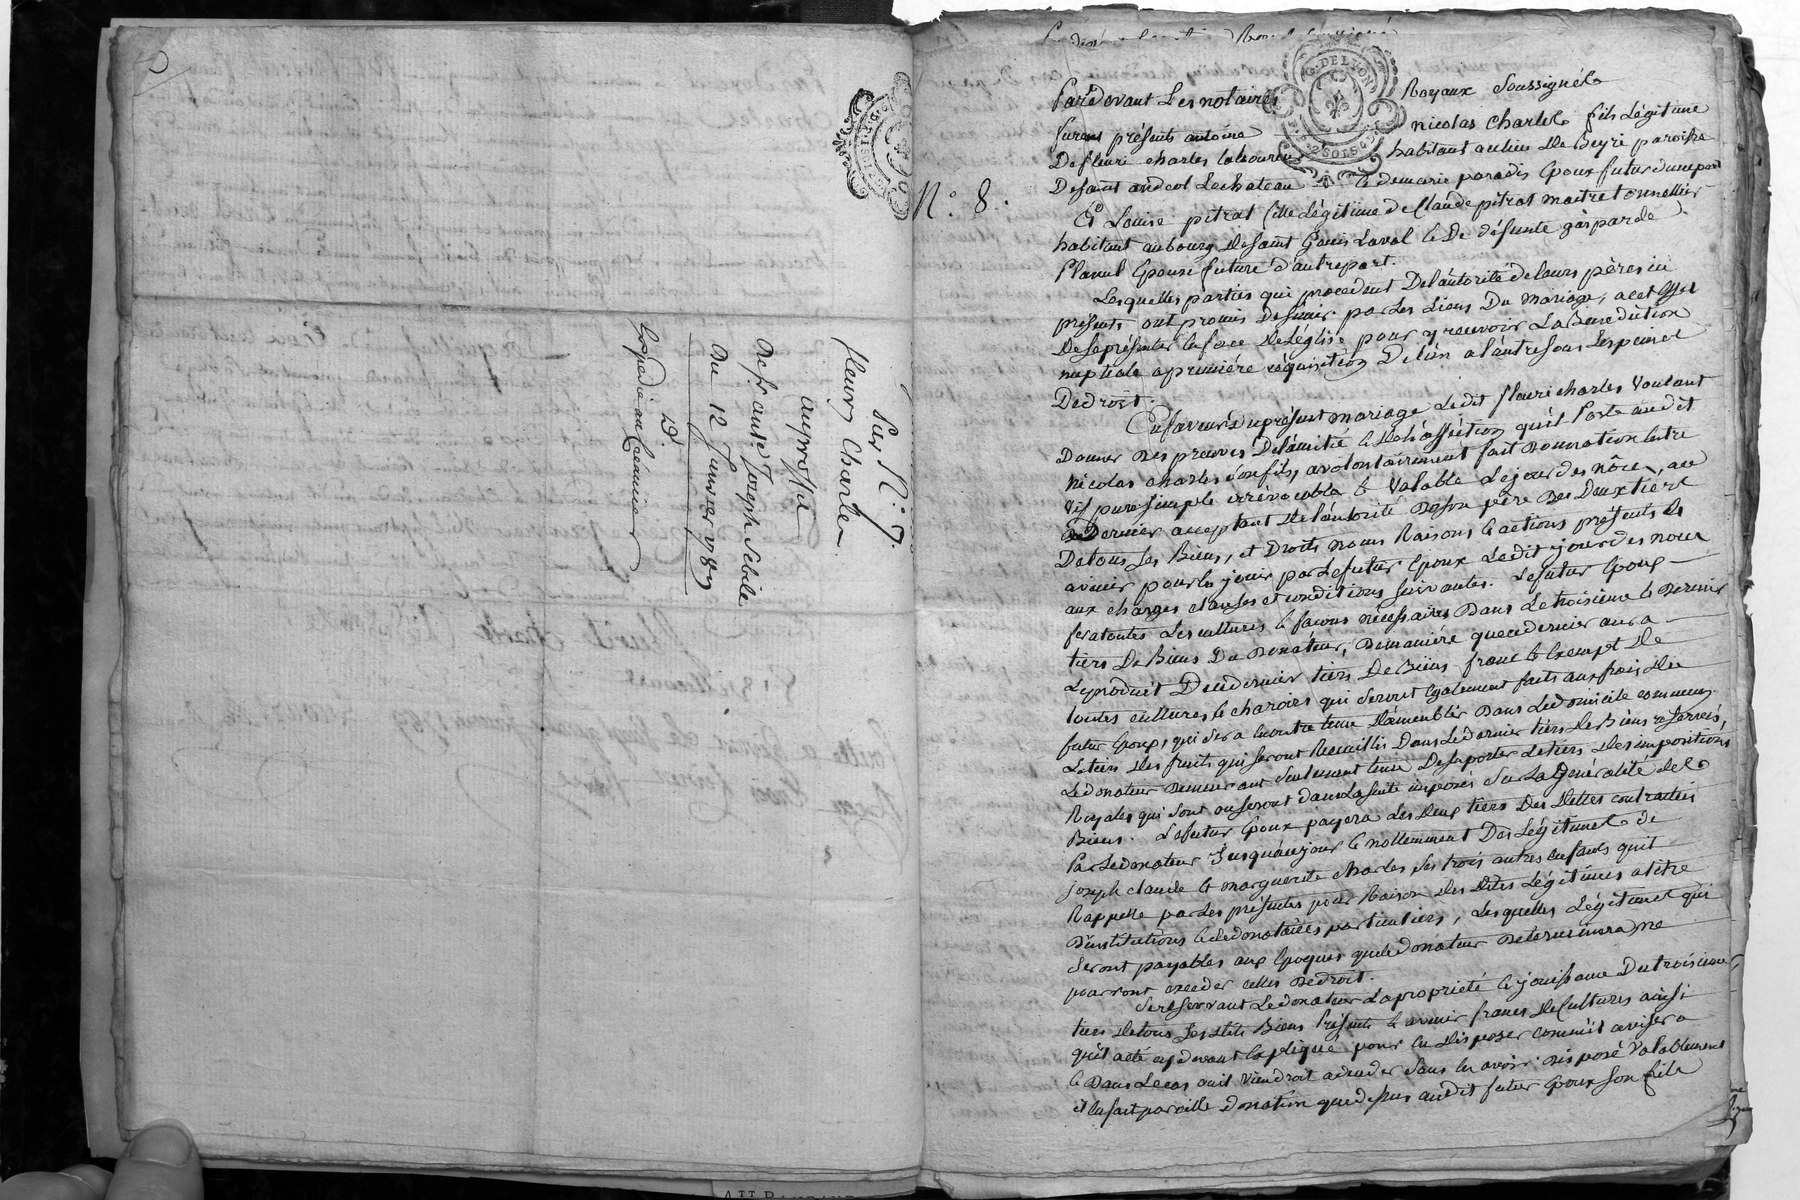 Sur N.° 7.
fleury Charle
au proffit
de fr. antd Joseph Sebile
du 12 Janvier 1789
Expedié au Créancier
N.° 8.
G. DE LYON
2 SOLS 4
Pardevant Les notaires Royaux Soussignés
furent présents antoine nicolas charles fils Légitime
De fleuri charles laboureur habitant au lieu de Beyré paroisse
De saint andeol Le chateau & de marie paradis Epoux futur d'une part
Et Louise pitrat fille Légitime de Claude pitrat maitre tonnellier
habitant au bourg de saint Genis Laval & De défunte gasparde
Planut Epouse future d'autre part.
Lesquelles parties qui procedent De l'autorité de leurs pères ici
présents ont promis De s'unir par Les Liens Du mariage, a cet effet
De se présenter En face De L'église pour y recevoir La Benediction
nuptiale a première réquisition De l'un a l'autre sous Les peines
De droit.
En faveur du présent mariage Ledit fleuri charles Voulant
Donner Des preuves De l'amitié & De l'affection qu'il Porte audit
nicolas charles son fils, a volontairement fait Donnation Entre
vifs pure simple irrévocable & Valable Le jour des nôces, a ce
Dernier acceptant De l'autorité De son père Des Deux tiers
De tous ses Biens, et Droits noms Raisons & actions présents &
avenir pour En jouir par Le futur Epoux Ledit jour des noces
aux charges clauses et conditions suivantes. Le futur Epoux
fera toutes Les cultures & façons nécessaires Dans Le troisieme & Dernier
tiers De Biens Du Donateur, De manière que ce dernier aura
Le produit De ce dernier tiers De Biens franc & Exempt De
toutes cultures & charois qui seront Egalement faits aux frais Du
futur Epoux, qui sera En outre tenu D'emmeubler Dans Le domicile commun
Le tiers Des fruits qui seront Recueillis Dans Le dernier tiers De Biens réservés,
Le donateur Demeurant seulement tenu De supporter Le tiers Des impositions
Royales qui sont ou seront dans La suite imposés Sur La Généralité de
Biens. Le futur Epoux payera Les Deux tiers Des Dettes contractées
Par Le donateur Jusqu'à ce jour & nottemment Des Légitimes de
joseph claude & marguerite charles ses trois autres Enfants qu'il
Rappelle par Les présentes pour Raison Des dites Légitimes a titre
D'institutions & De donataires particuliers, Lesquelles Légitimes qui
seront payables aux Epoques que Le donateur Determinera ne
pourront exceder celles De droit.
Se reservant Le donateur La propriété & jouissance Du troisieme
tiers De tous ses dits Biens Présents & avenir francs De Cultures ainsi
qu'il a été cy devant Expliqué pour En Disposer comm'il avisera
& Dans Le cas ou il Viendroit a deceder sans En avoir Disposé Valablement
il En fait pareille donation que dessus audit futur Epoux son fils